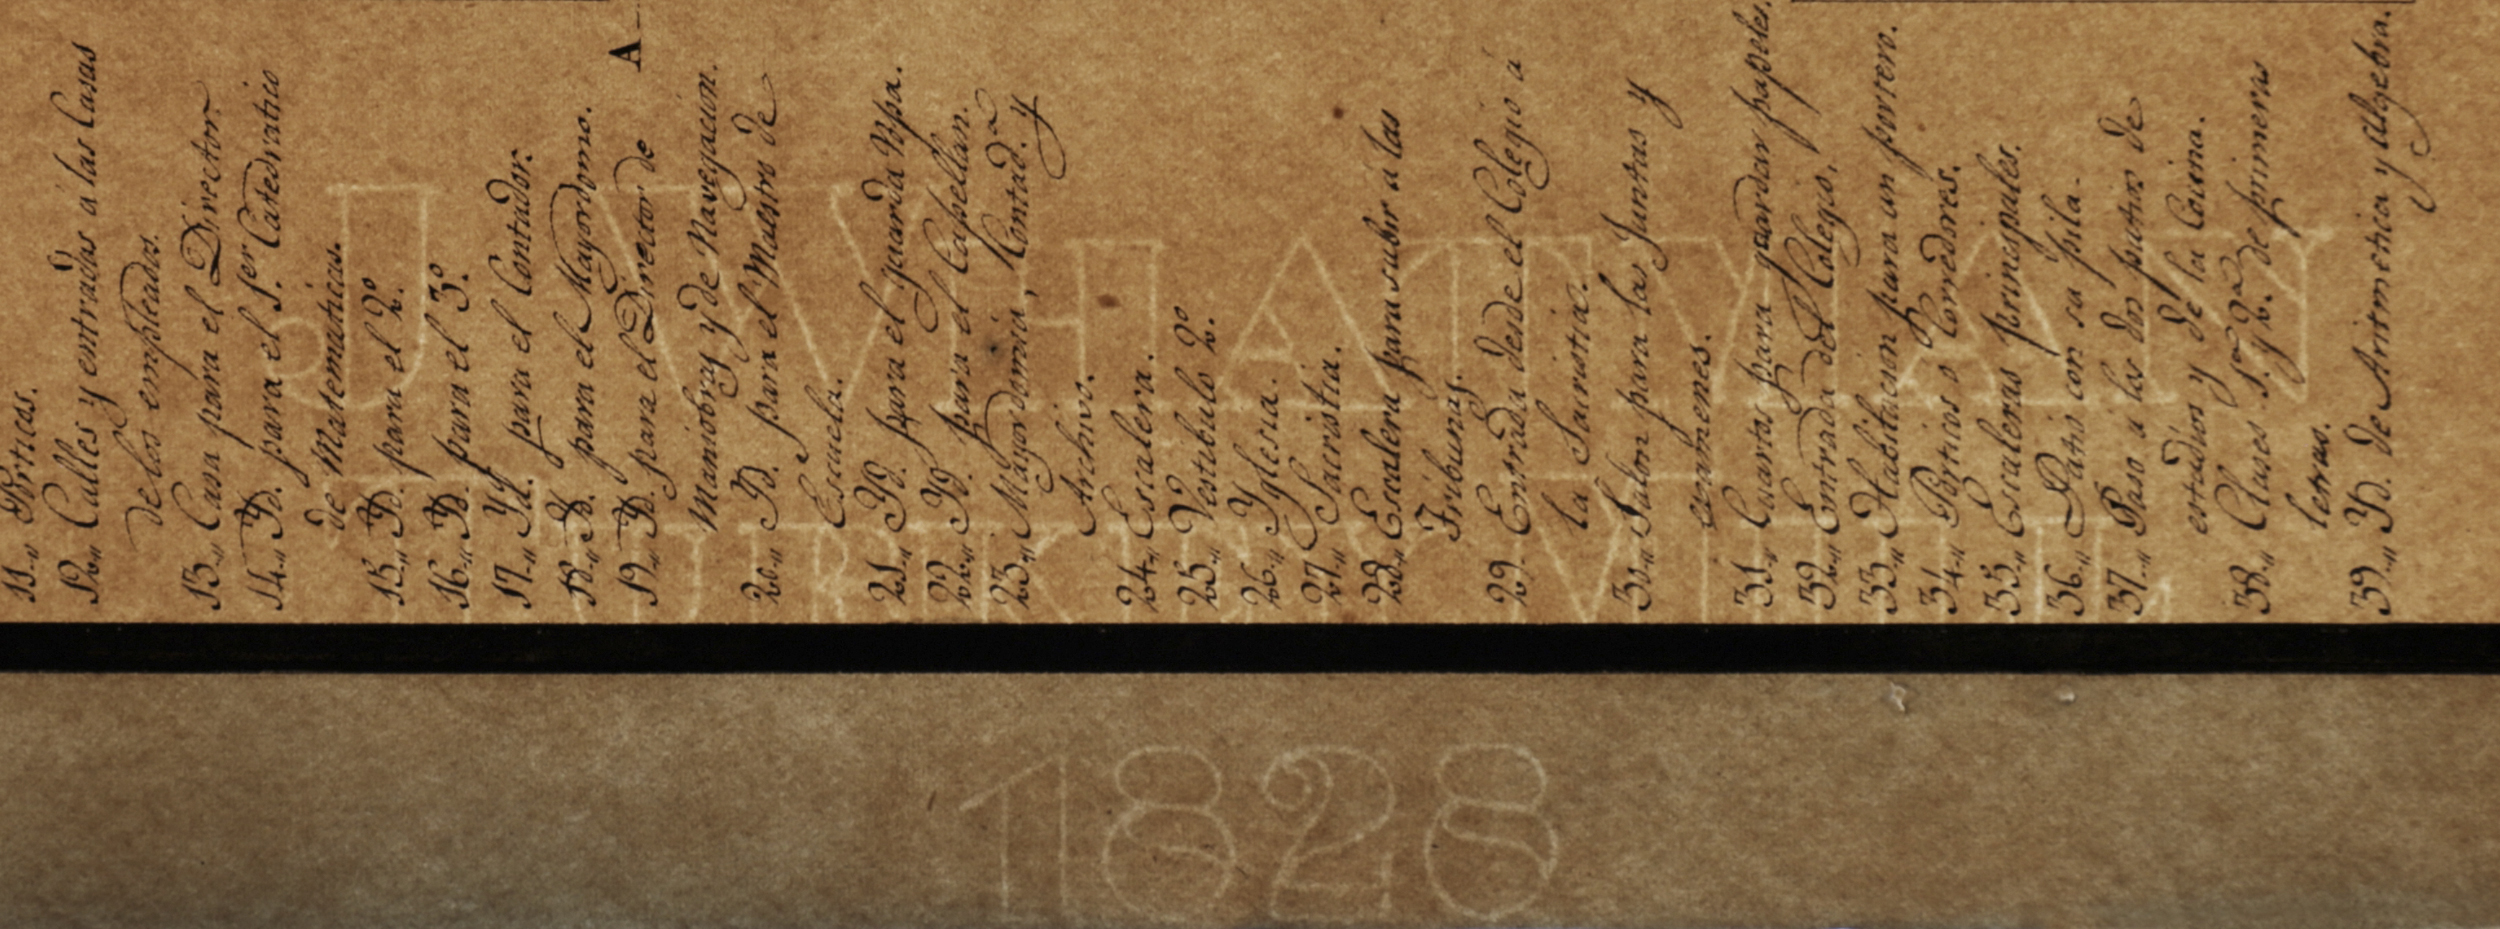 11.,, Porticos.
12.,, Calles y entradas á las Casas
de los empleados.
13.,, Casa para el Director
14.,, Yd. para el S.er Catedratico
de Matematicas.
15.,, Yd. para el 2º
16.,, Yd. para el 3º.
17.,, Yd. para el Contador.
18.,, Yd. para el Mayordomo.
19.,, Yd. para el Director de
Maniobras y de Navegacion.
20.,, Yd. para el Maestro de
Escuela.
21.,, Yd. para el guarda Rpa.
22.,, Yd. para el Capellan.
23.,, Mayordomia, Contad.a y
Archivo.
24.,, Escalera.
25.,, Vestibulo 2º.
26.,, Yglesia.
27.,, Sacristia.
28.,, Escalera para subir á las
Tribunas.
29. Entrada desde el Colegio á
la Sacristia.
30.,, Salon para las Juntas y
examenes.
31.,, Cuartos para guardar papeles.
32.,, Entrada del Colegio.
33.,, Habitacion para un portero.
34.,, Porticos o Corredores.
35.,, Escaleras principales.
36.,, Patio con su pila.
37.,, Paso a los dos patios de
estudios y de la Cocina.
38.,, Clases 1.a y 2.a de primeras
letras.
39.,, Yd. de Aritmetica y Algebra.
A
J WHATMAN
TURKEY MILL
1828